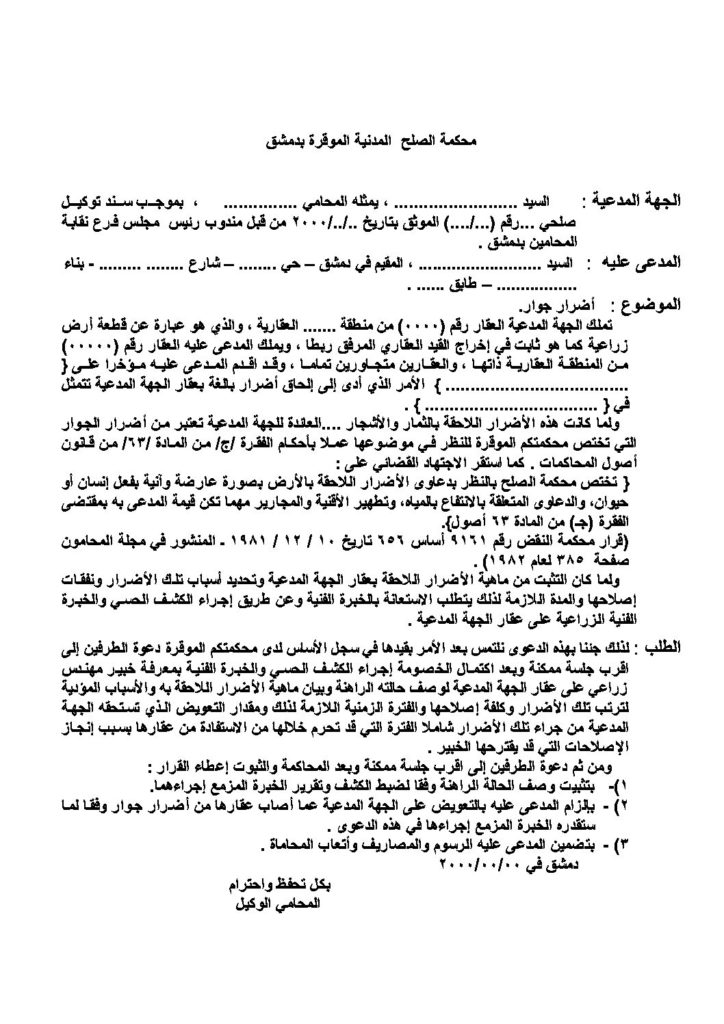 محكمة الصلح المدنية الموقرة بدمشق
الجهة المدعية : السيد ......................... ، يمثله المحامي ............... ، بموجب سند توكيل
صلحي ...رقم (.../....) الموثق بتاريخ ../../٢٠٠٠ من قبل مندوب رئيس مجلس فرع نقابة
المحامين بدمشق .
المدعى عليه : السيد ......................... ، المقيم في دمشق – حي ........ – شارع ........ ......... - بناء
................ – طابق ...... .
الموضوع : أضرار جوار.
تملك الجهة المدعية العقار رقم (٠٠٠٠) من منطقة ....... العقارية ، والذي هو عبارة عن قطعة أرض
زراعية كما هو ثابت في إخراج القيد العقاري المرفق ربطا ، ويملك المدعى عليه العقار رقم (٠٠٠٠٠)
من المنطقة العقارية ذاتها ، والعقارين متجاورين تماما ، وقد اقدم المدعى عليه مؤخرا على {
..................................... } الأمر الذي أدى إلى إلحاق أضرار بالغة بعقار الجهة المدعية تتمثل
في { ................................... } .
ولما كانت هذه الأضرار اللاحقة بالثمار والأشجار ....العائدة للجهة المدعية تعتبر من أضرار الجوار
التي تختص محكمتكم الموقرة للنظر في موضوعها عملا بأحكام الفقرة /ج/ من المادة /٦٣/ من قانون
أصول المحاكمات . كما استقر الاجتهاد القضائي على :
{ تختص محكمة الصلح بالنظر بدعاوى الأضرار اللاحقة بالأرض بصورة عارضة وآنية بفعل إنسان أو
حيوان، والدعاوى المتعلقة بالانتفاع بالمياه، وتطهير الأقنية والمجارير مهما تكن قيمة المدعى به بمقتضى
الفقرة (جـ) من المادة ٦٣ أصول}.
(قرار محكمة النقض رقم ٩١٦١ أساس ٦٥٦ تاريخ ١٠ / ١٢ / ١٩٨١ ـ المنشور في مجلة المحامون
صفحة ٣٨٥ لعام ١٩٨٢) .
ولما كان التثبت من ماهية الأضرار اللاحقة بعقار الجهة المدعية وتحديد أسباب تلك الأضرار ونفقات
إصلاحها والمدة اللازمة لذلك يتطلب الاستعانة بالخبرة الفنية وعن طريق إجراء الكشف الحسي والخبرة
الفنية الزراعية على عقار الجهة المدعية .
الطلب : لذلك جئنا بهذه الدعوى نلتمس بعد الأمر بقيدها في سجل الأساس لدى محكمتكم الموقرة دعوة الطرفين إلى
اقرب جلسة ممكنة وبعد اكتمال الخصومة إجراء الكشف الحسي والخبرة الفنية بمعرفة خبير مهندس
زراعي على عقار الجهة المدعية لوصف حالته الراهنة وبيان ماهية الأضرار اللاحقة به والأسباب المؤدية
لترتب تلك الأضرار وكلفة إصلاحها والفترة الزمنية اللازمة لذلك ومقدار التعويض الذي تستحقه الجهة
المدعية من جراء تلك الأضرار شاملا الفترة التي قد تحرم خلالها من الاستفادة من عقارها بسبب إنجاز
الإصلاحات التي قد يقترحها الخبير .
ومن ثم دعوة الطرفين إلى اقرب جلسة ممكنة وبعد المحاكمة والثبوت إعطاء القرار :
١)- بتثبيت وصف الحالة الراهنة وفقا لضبط الكشف وتقرير الخبرة المزمع إجراءهما.
٢) - بإلزام المدعى عليه بالتعويض على الجهة المدعية عما أصاب عقارها من أضرار جوار وفقا لما
ستقدره الخبرة المزمع إجراءها في هذه الدعوى .
٣) - بتضمين المدعى عليه الرسوم والمصاريف وأتعاب المحاماة .
دمشق في ٢٠٠٠/٠٠/٠٠
بكل تحفظ واحترام
المحامي الوكيل